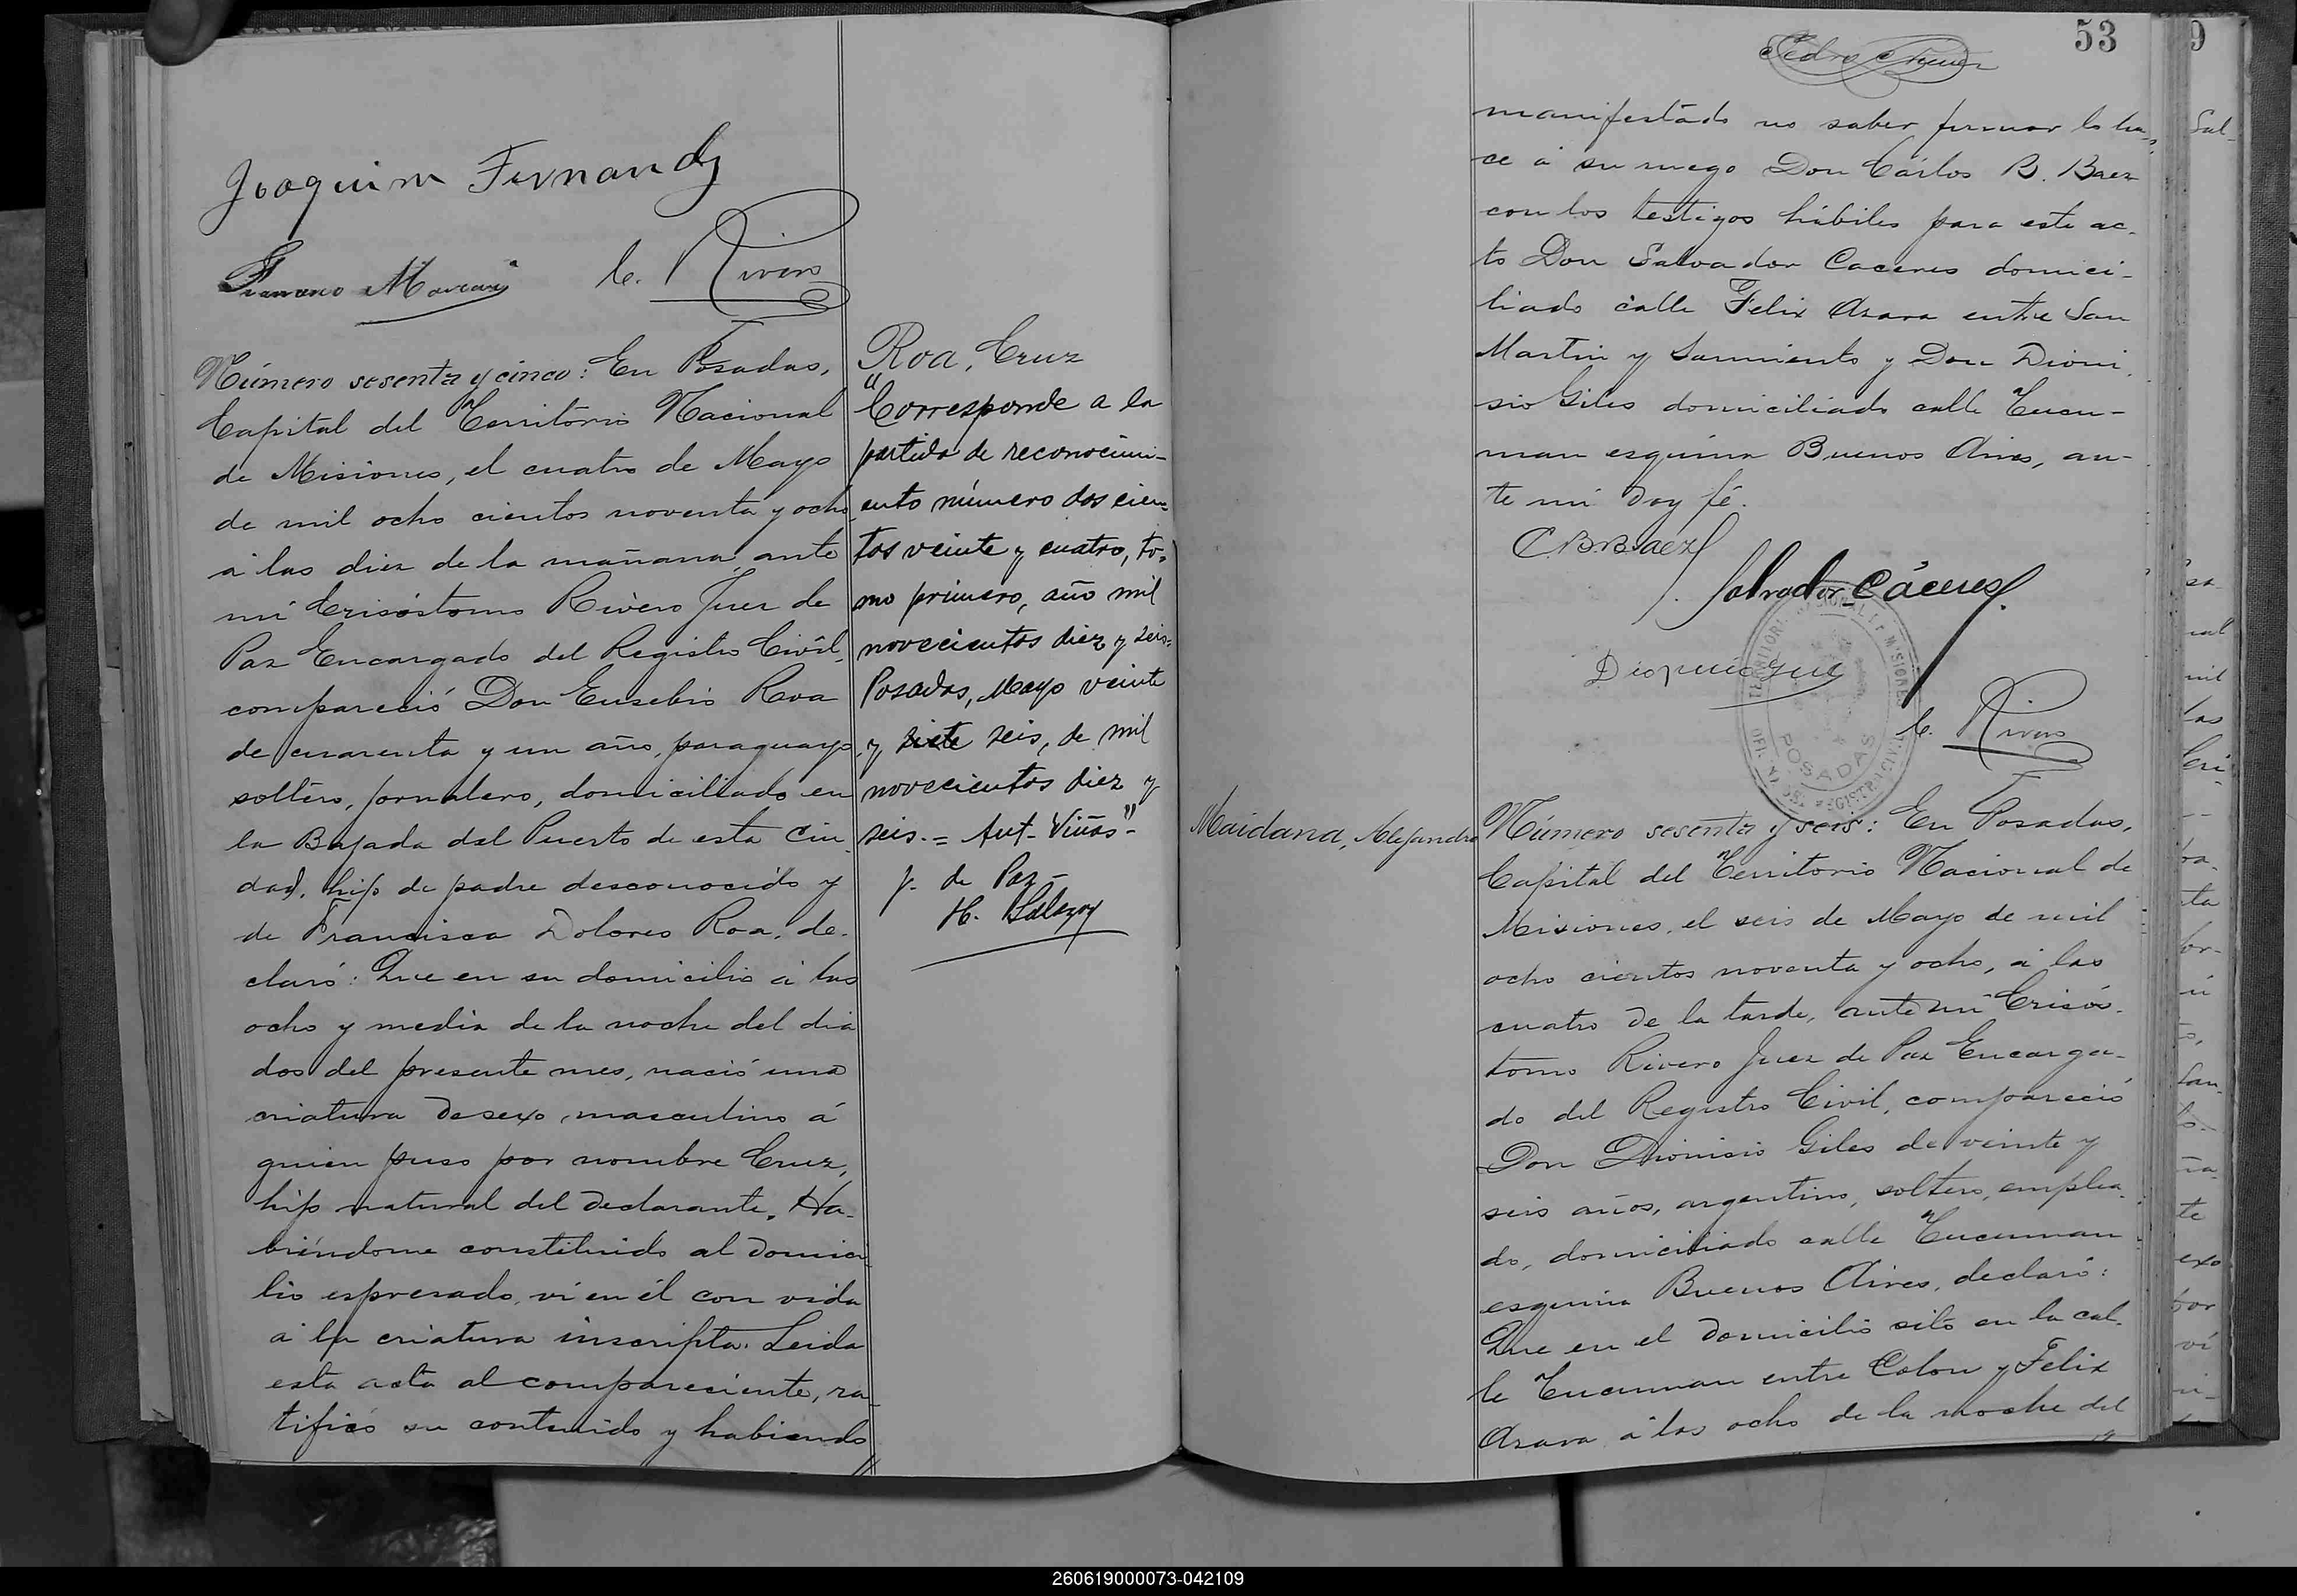 Joaquim Fernandz
C. Rivero
Número sesenta y cinco: En Posadas,
Capital del Territorio Nacional
de Misiones, el cuatro de Mayo
de mil ocho cientos noventa y ocho
á las diez de la mañana, ante
mí Crisóstomo Rivero Juez de
Paz Encargado del Registro Civil,
compareció Don Eusebio Roa
de cuarenta y un año, paraguayo
soltero, jornalero, domiciliado en
la Bajada del Puerto de esta ciu-
dad, hijo de padre desconocido y
de Francisca Dolores Roa, de-
claró: Que en su domicilio á las
ocho y media de la noche del dia
dos del presente mes, nació una
criatura de sexo masculino á
quien puso por nombre Cruz,
hijo natural del declarante. Ha-
biéndome constituido al domici
lio espresado, ví en él con vida
á la criatura inscripta. Leida
esta acta al compareciente, ra-
tificó su contenido y habiendo
Roa, Cruz
"Corresponde a la
partida de reconocimi-
ento número doscien-
tos veinte y cuatro, to-
mo primero, año mil
novecientos diez y seis-
Posadas, Mayo veinte
y siete seis, de mil
novecientos diez y
seis.= Ant- Viñas"-
J. de Paz-
H. Salazar
53
manifestado no saber firmar lo ha-
ce á su ruego Don Cárlos B. Baez
con los testigos hábiles para este ac-
to Don Salvador Caceres domici-
liado calle Felix Azara entre San
Martin y Sarmiento y Don Dioni
sio Giles domiciliado calle Tucu-
man esquina Buenos Aires, an-
te mi doy fé.
C B Baez
Salvador Cáceres
C. Rivero
POSADAS
Maidana, Alejandro
Número sesenta y seis: En Posadas,
Capital del Territorio Nacional de
Misiones, el seis de Mayo de mil
ocho cientos noventa y ocho, á las
cuatro de la tarde, ante mí Crisós-
tomo Rivero Juez de Paz Encarga-
do del Registro Civil, compareció
Don Dionisio Giles de veinte y
seis años, argentino, soltero, emplea-
do, domiciliado calle Tucuman
esquina Buenos Aires, declaró:
Que en el domicilio sito en la cal-
le Tucuman entre Colon y Felix
Azara á las ocho de la noche del
260619000073-042109